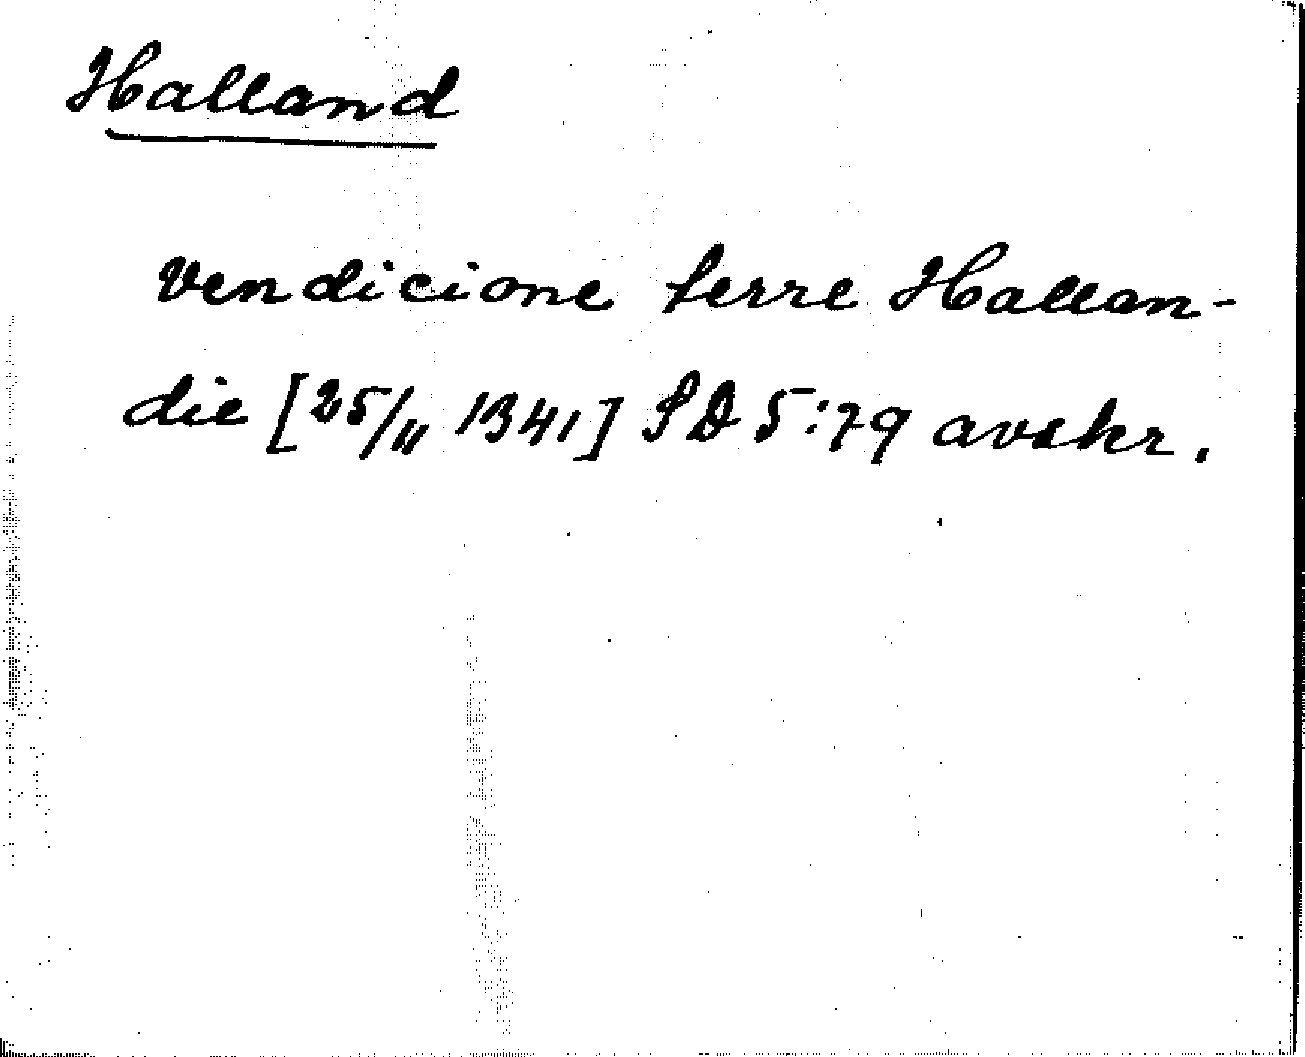 Halland
vendicione terre Hallan-
die [25/11 1341] SD 5:79 avskr.